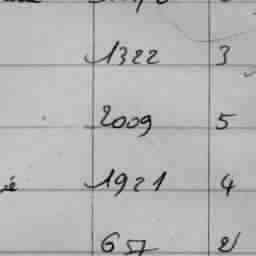 1322 3
2009 5
1921 4
657 2